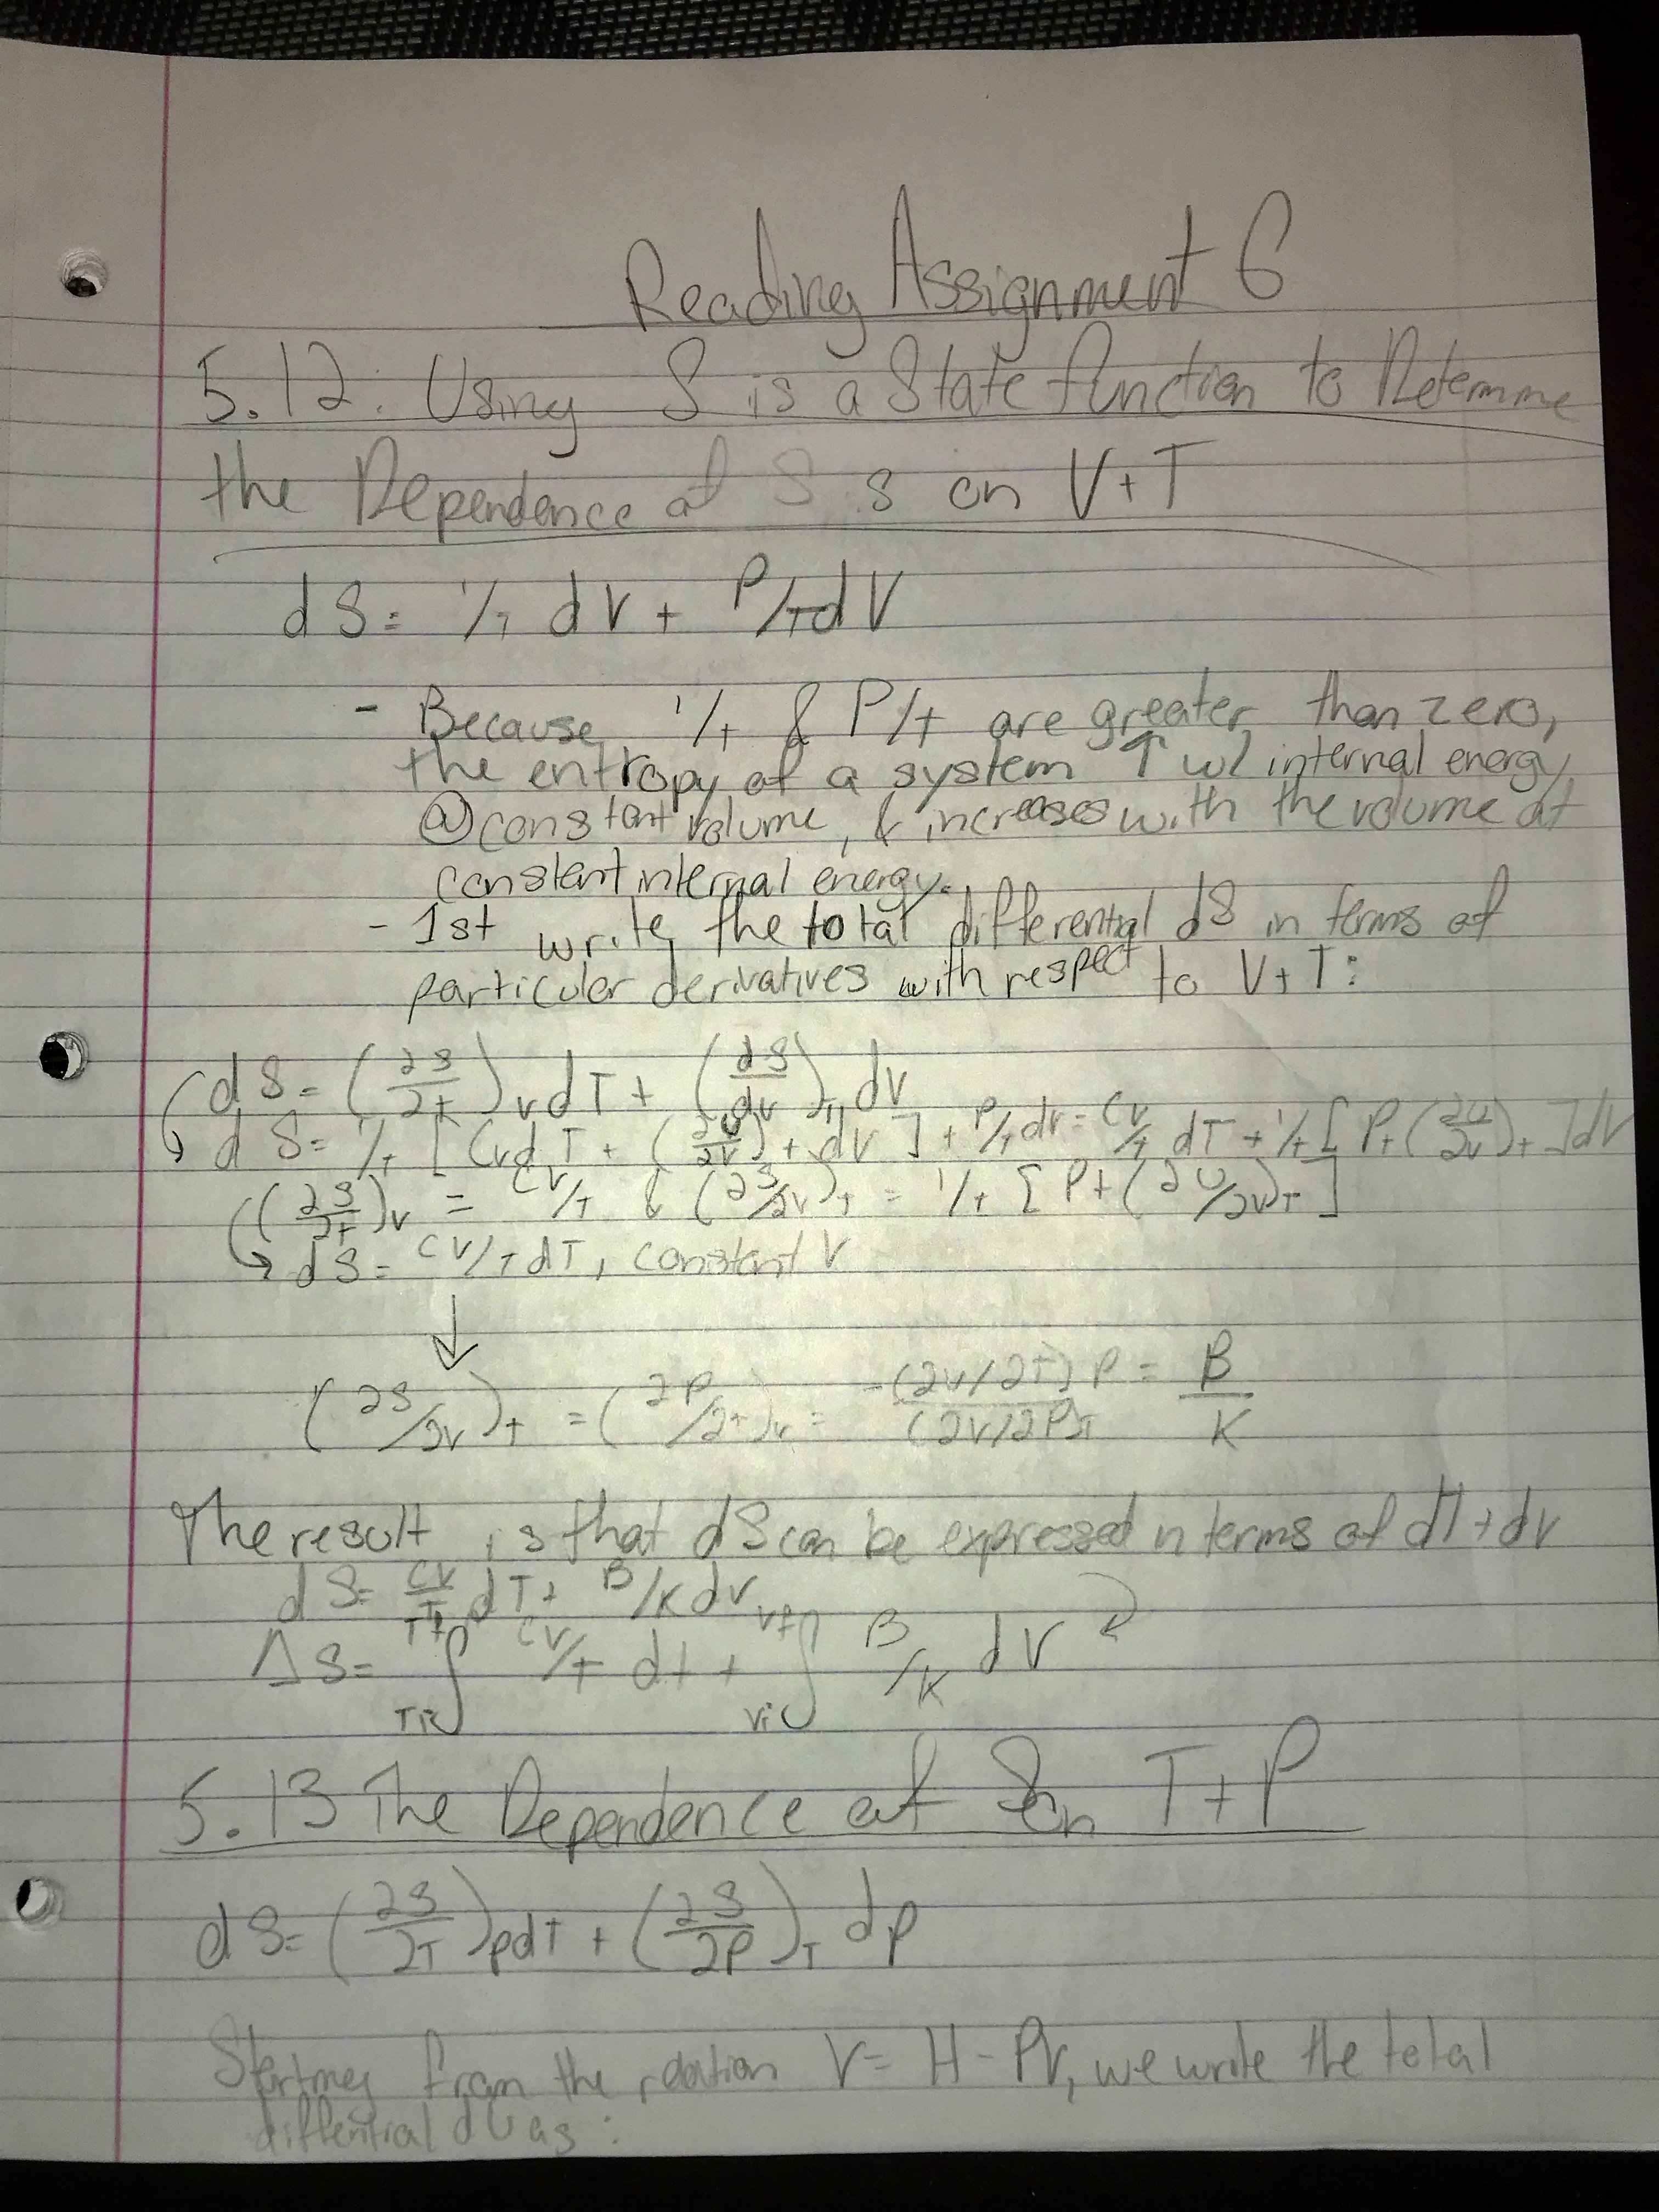 Reading Assignment 6
5.12: Using S is a State function to Determine
the Dependence of S S on V+T
dS = 1/T dV + P/T dV
- Because 1/T & P/T are greater than zero,
the entropy of a system ↑ w/ internal energy
@ constant volume, & increases with the volume at
constant internal energy.
- 1st write the total differential dS in terms of
particuler derivatives with respect to V+T:
dS = (∂S/∂T)V dT + (dS/dV)T dV
dS = 1/T [CvdT + (∂U/∂V)T dV] + P/T dV = CV/T dT + 1/T [P + (∂U/∂V)T]dV
((∂S/∂T)V = CV/T & (∂S/∂V)T = 1/T [P + (∂U/∂V)T]
dS = CV/T dT, constant V
↓
(∂S/∂V)T = (∂P/∂T)V = -(∂V/∂T)P/(∂V/∂P)T = B/K
The result is that dS can be expressed n terms of dT+dV
dS = CV/T dT + B/K dV
ΔS = ∫ Ti Tf CV/T dt + ∫ Vi Vf B/K dV
5.13 The Dependence of S on T+P
dS = (∂S/∂T)P dT + (∂S/∂P)T dP
Starting from the relation V = H - PV, we write the total
differential dU as: